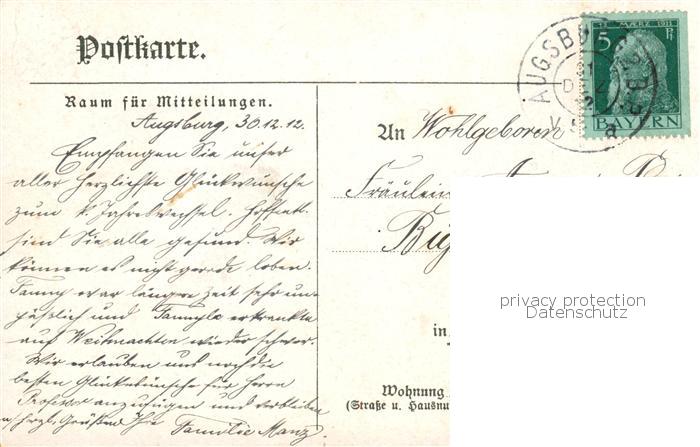 Postkarte.
Raum für Mitteilungen.
Augsburg, 30.12.12.
Empfangen Sie unser
aller herzlichste Glückwünsche
zum k. Jahreswechsel. Hoffentl.
sind Sie alle gesund. Wir
können es nicht gerade loben.
Fanny war längere Zeit sehr un-
päßlich und erkrankte
auf Weihnachten wieder schwer.
Wir erlauben uns noch die
besten Glückwünsche für Herrn
Professor anzufügen und verbleiben
m. herzl. Grüßen Ihre Familie Manz
12 MÆRZ 1911
5 Pf
BAYERN
AUGSBURG
DEZ
12
V
a
An Wohlgeboren
Fräulein
in
Wohnung
(Straße u. Hausnu
privacy protection
Datenschutz